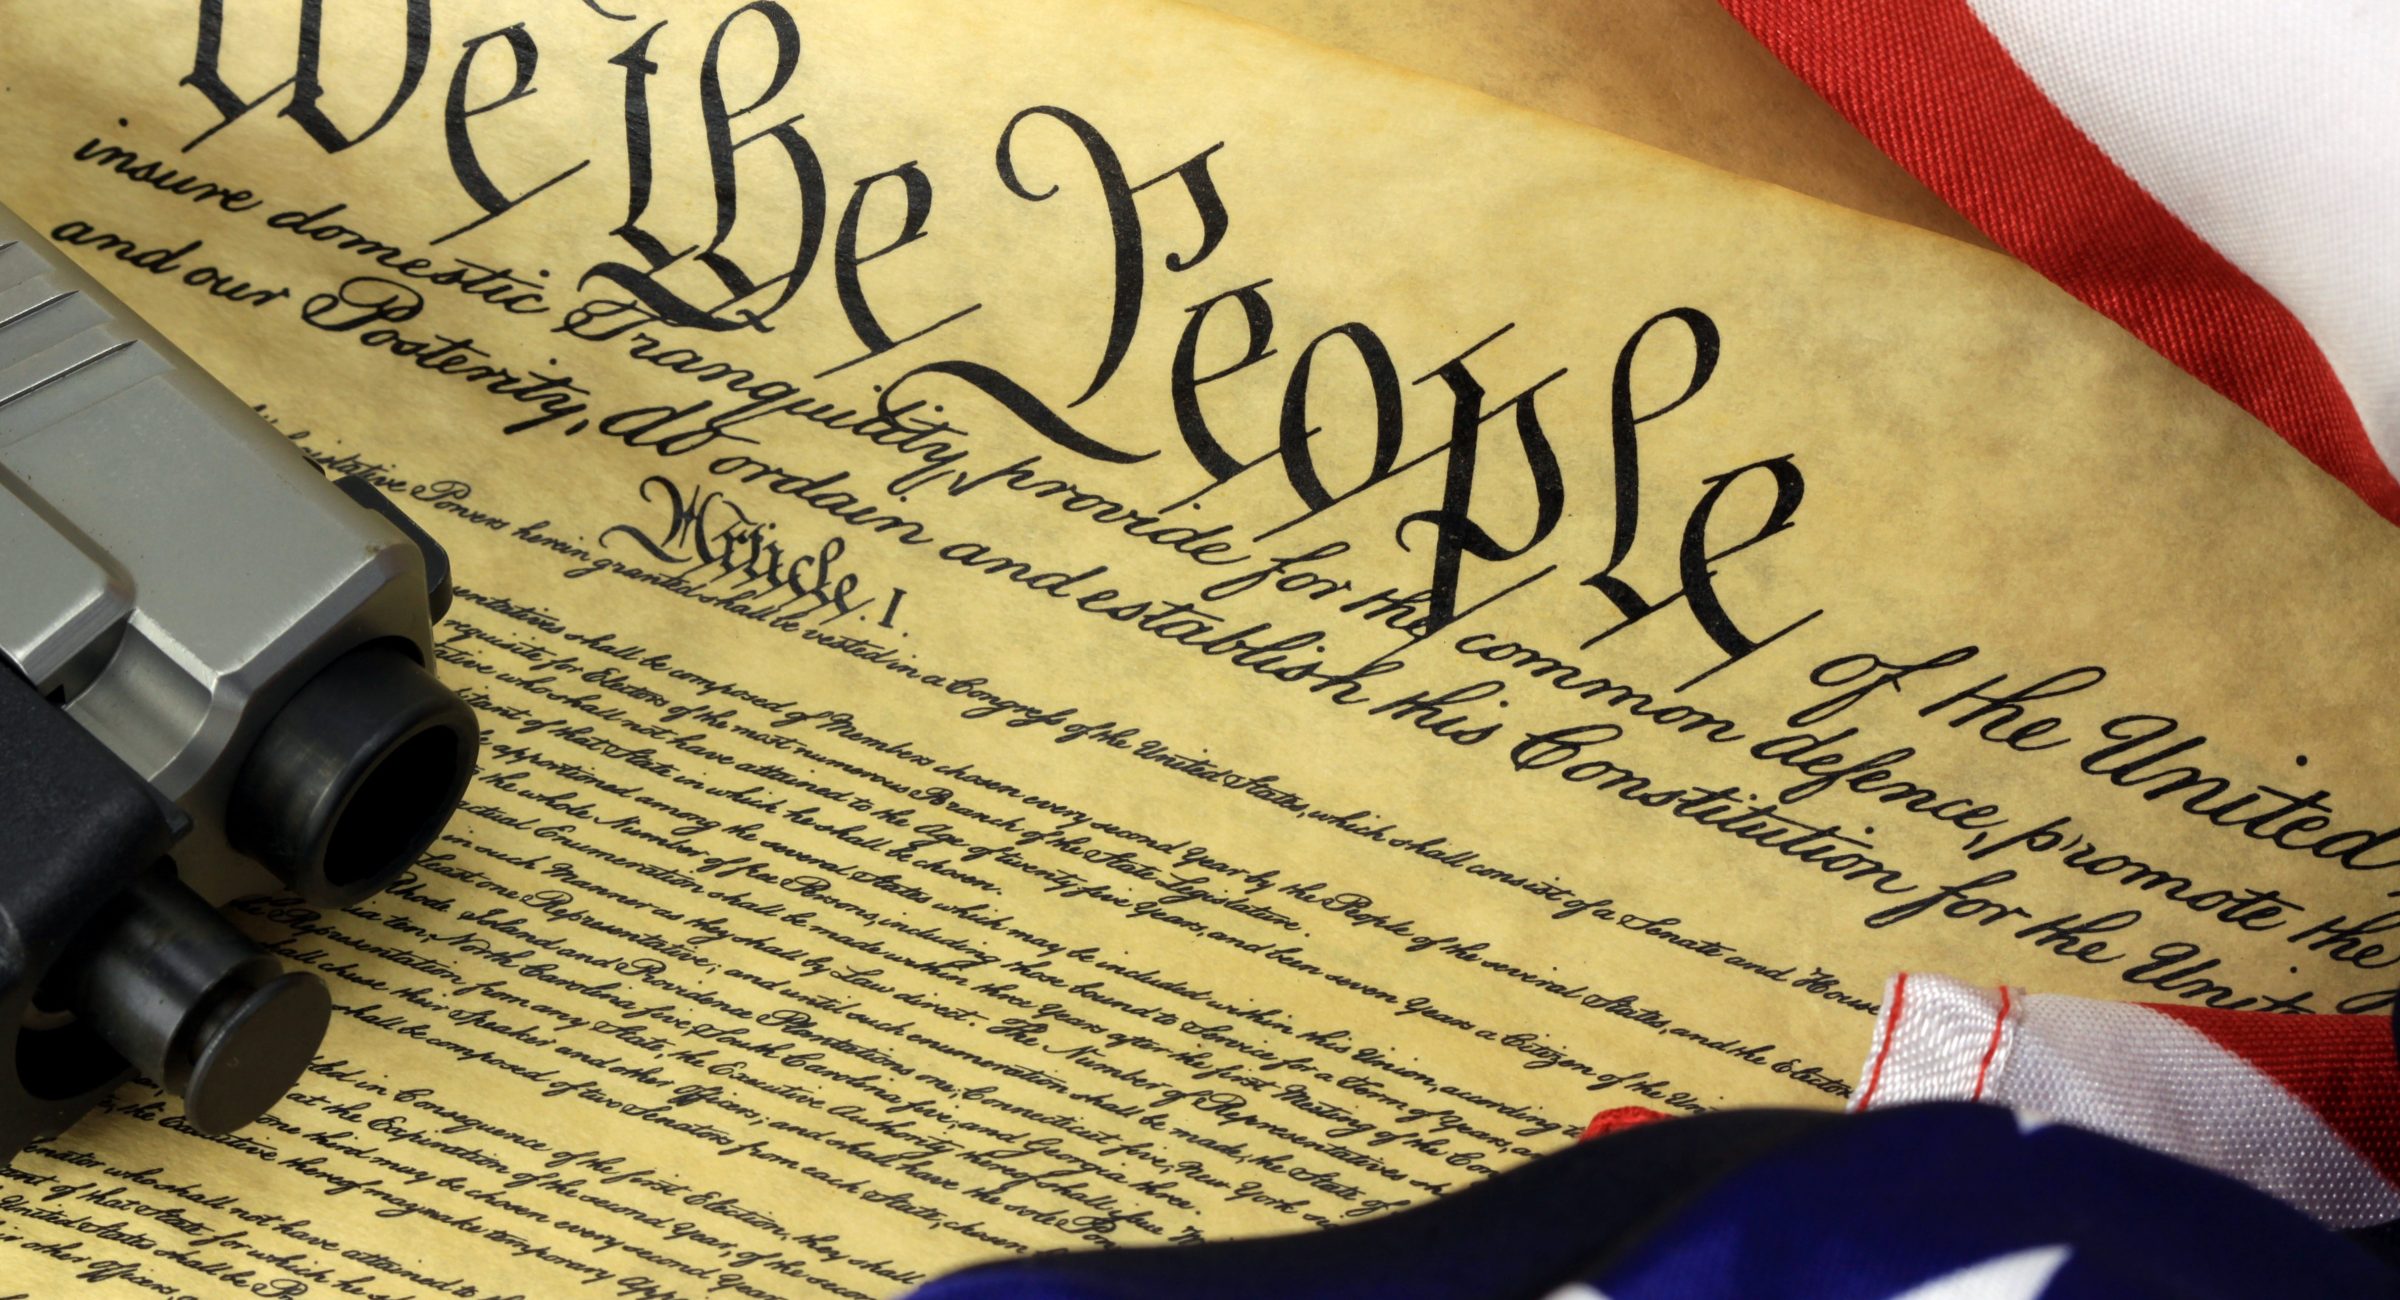 We the People of the United
insure domestic Tranquility, provide for the common defence, promote the
and our Posterity, do ordain and establish this Constitution for the Unit
Article. I.
Powers herein granted shall be vested in a Congress of the United States, which shall consist of a Senate and House
shall be composed of Members chosen every second Year by the People of the several States, and the Electors
requisite for Electors of the most numerous Branch of the State Legislature.
who shall not have attained to the Age of twenty five Years, and been seven Years a Citizen of the
of that State in which he shall be chosen.
apportioned among the several States which may be included within this Union, according
the whole Number of free Persons, including those bound to Service for a Term of Years,
Enumeration shall be made within three Years after the first Meeting of the
in such Manner as they shall by Law direct. The Number of Representatives
least one Representative; and until such enumeration shall be made, the State of
Rhode Island and Providence Plantations one, Connecticut five, New York
North Carolina five, South Carolina five, and Georgia three.
Representation from any State, the Executive Authority thereof shall
chuse their Speaker and other Officers; and shall have the sole
shall be composed of two Senators from each State, chosen
in Consequence of the first Election, they shall
at the Expiration of the second Year, of the
one third may be chosen every second Year
the Executive thereof may make temporary
who shall not have attained to
of that State for which he
United States shall be
other Officers,